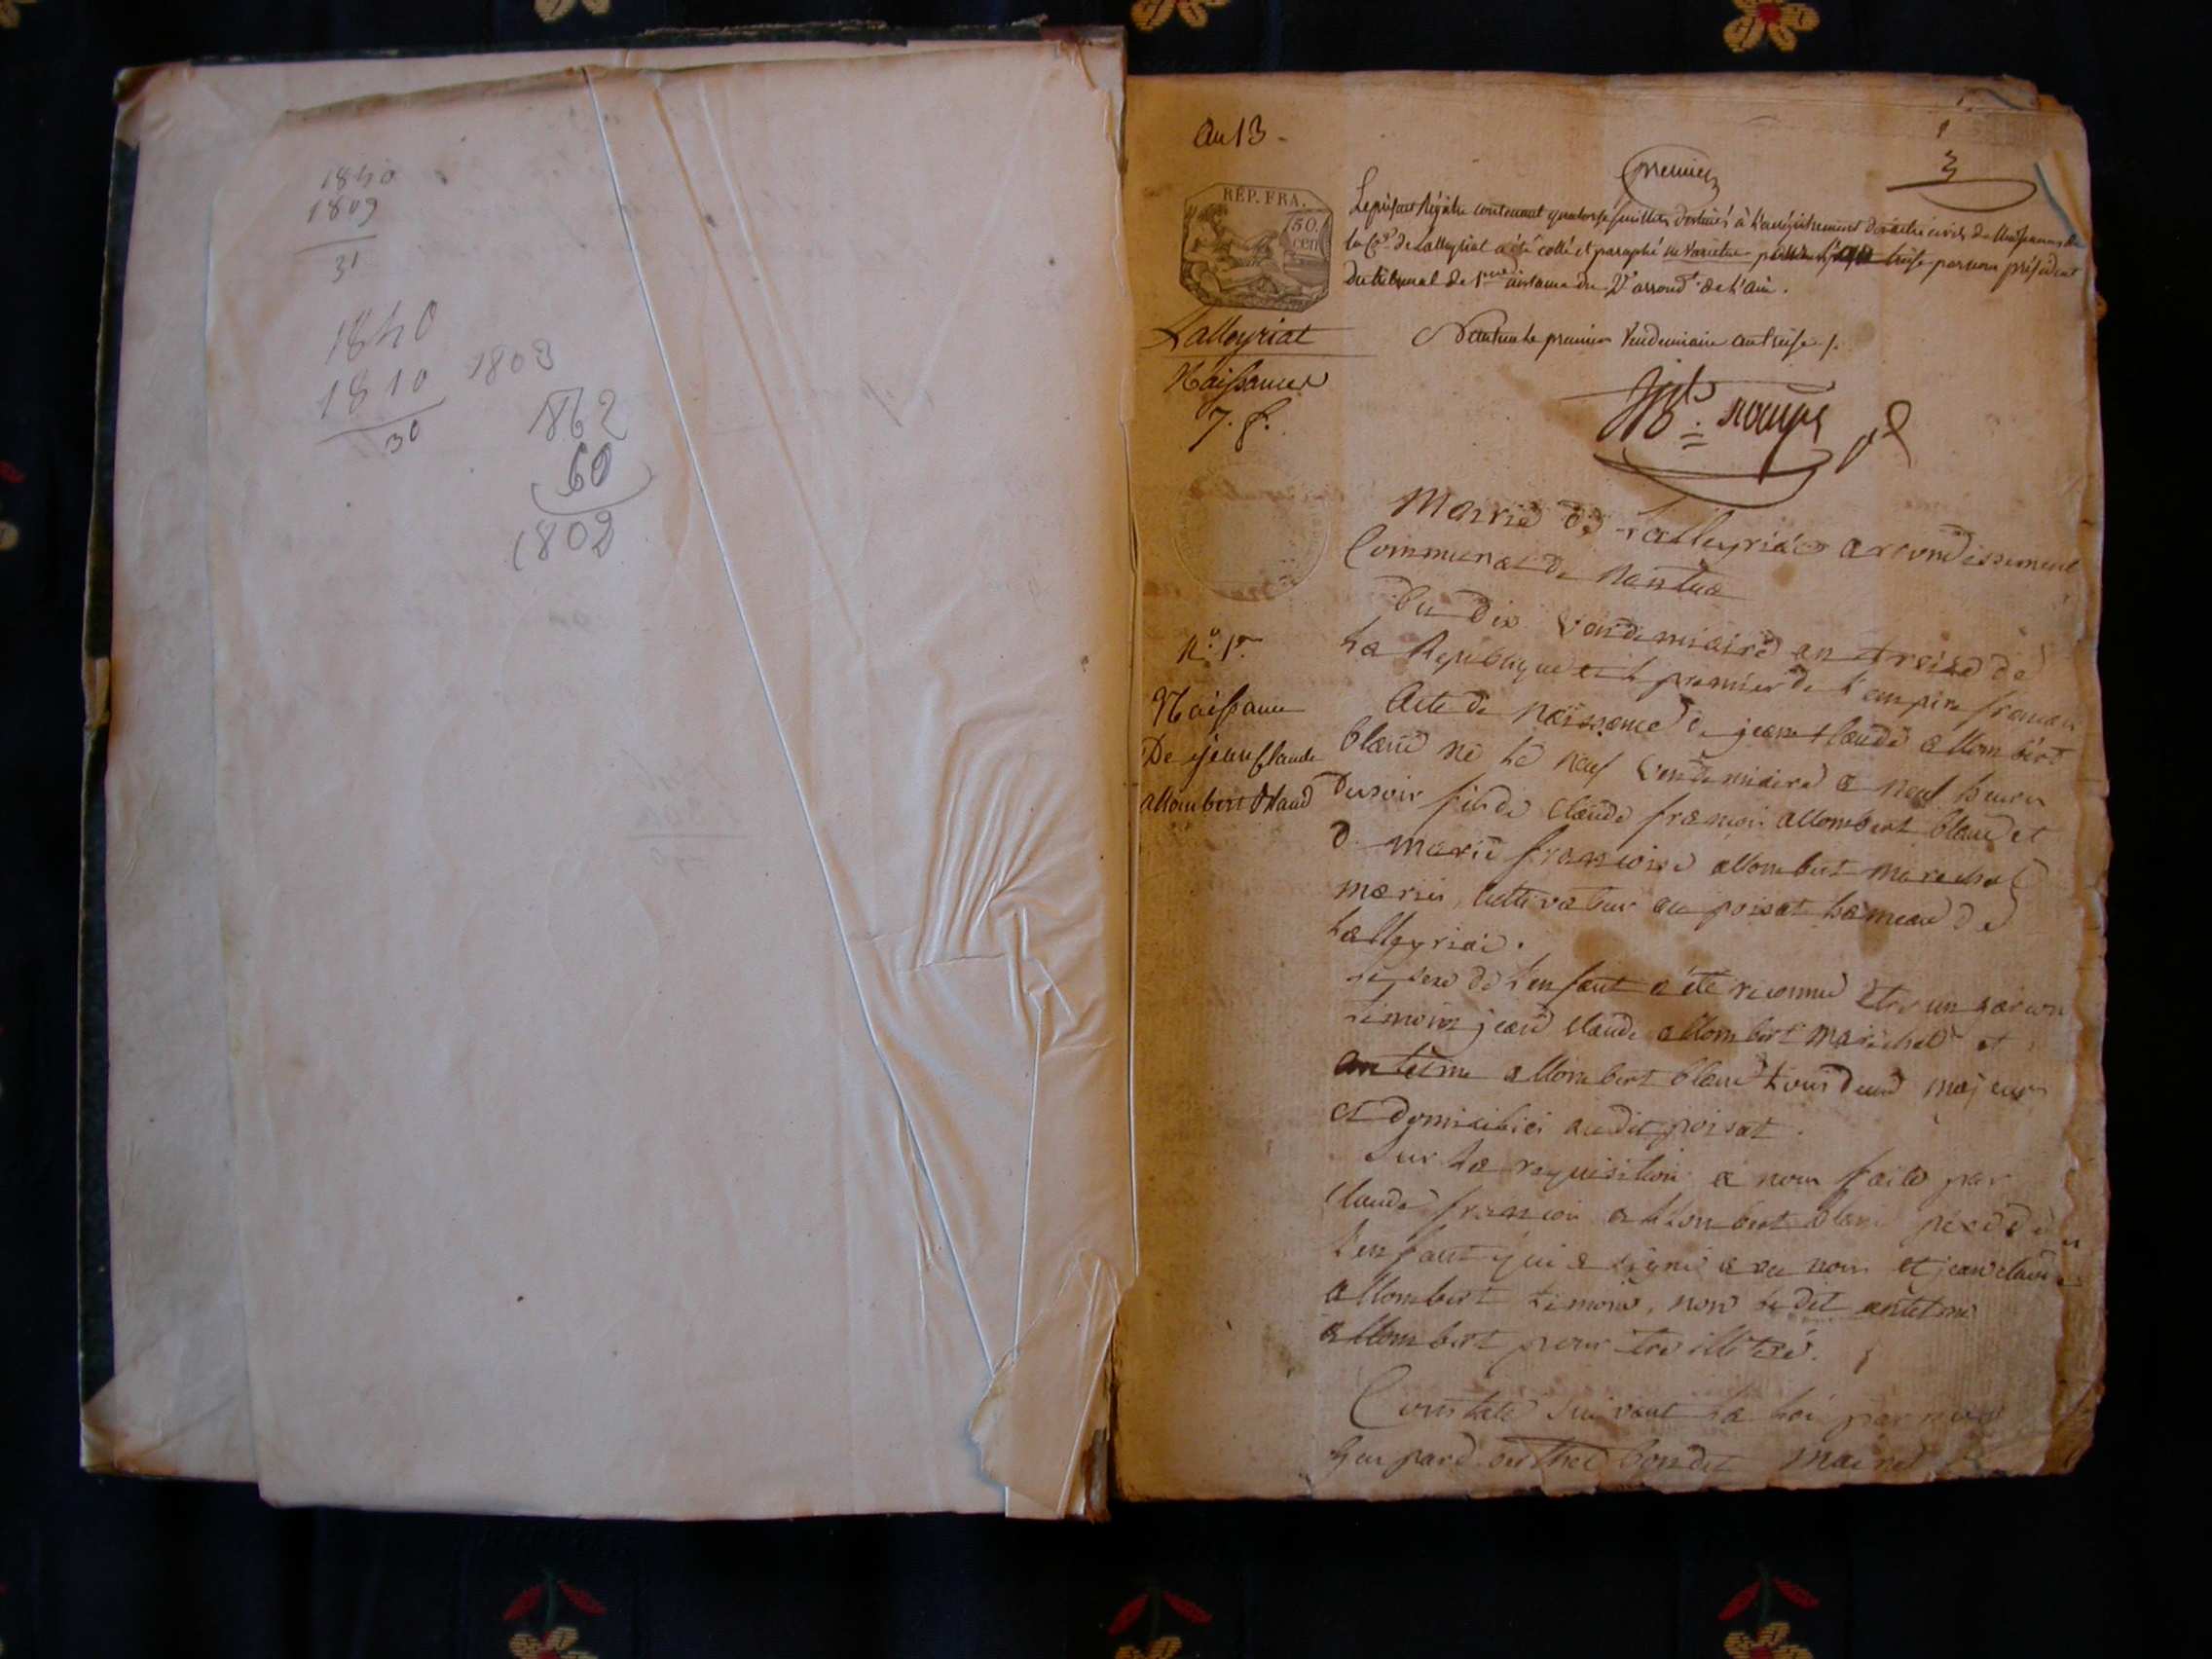 1840
1809
31
1840
1810
30
1803
1862
60
1802
an 13 -
1
3
premier
REP. FRA.
50.
cen
Le présent Régistre contenant quatorze feuillets destinés à l'enrégistrement des actes civils de Naissances de
la Cne de Lalleyriat a été cotté et paraphé ne varietur treize par nous président
du tribunal de 1ere instance du 2e arrond.t de l'ain.
Lalleyriat
Nantua le premier Vendemiaire an treize /.
Naissances
7. f.
Mairie de Lalleyriat arrondissement
Communal de Nantua
Du dix vendemiaire an treize de
N.o 1.er
La Republique et le premier de l'empire francais
Acte de naissance de jean claude allombert
Naissance
De jean claude
allombert Blanc
blanc né le neuf vendemiaire a neuf heures
du soir fils de claude francoi allombert blanc et
d marie francoise allombert marechal
mariés, cultivateur au poizat hameau de
Lalleyriat.
Le sexe de l'enfant a été reconnu etre un garcon
temoins jean claude allombert marechal et
antelme allombert blanc tous deux majeurs
et domiciliés audit poizat.
Sur la requisition a nous faite par
claude francoi allombert blanc père de
l'enfant qui a signé avec nous et jean claude
allombert temoins, non le dit antelme
allombert pour etre illitéré.
Constaté suivant la loi par nous
gaspard berthet bondet maire